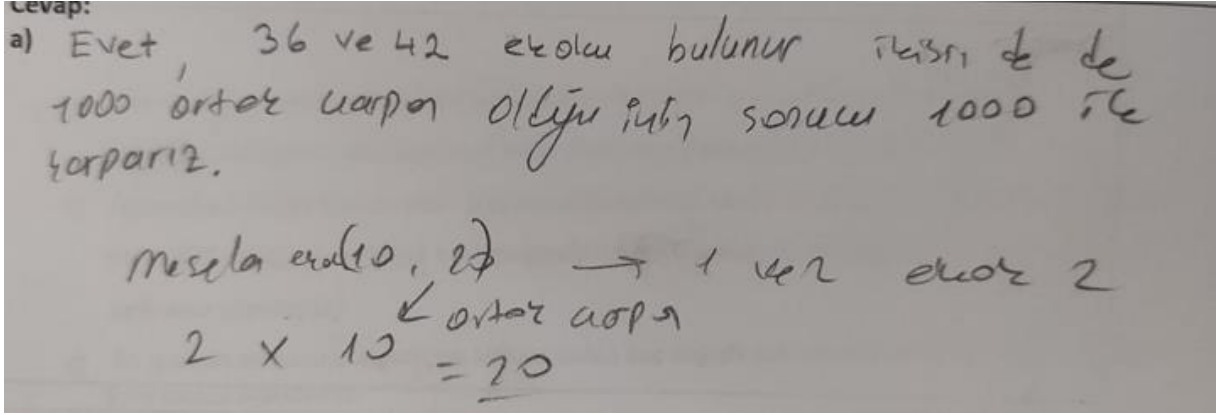 Cevap:
a) Evet, 36 ve 42 ekoku bulunur ikisi de
1000 ortak çarpan olduğu için sonucu 1000 ile
çarparız.
Mesela eko(10, 20) → 1 ve 2 ekok 2
ortak çarpan
2 x 10
= 20